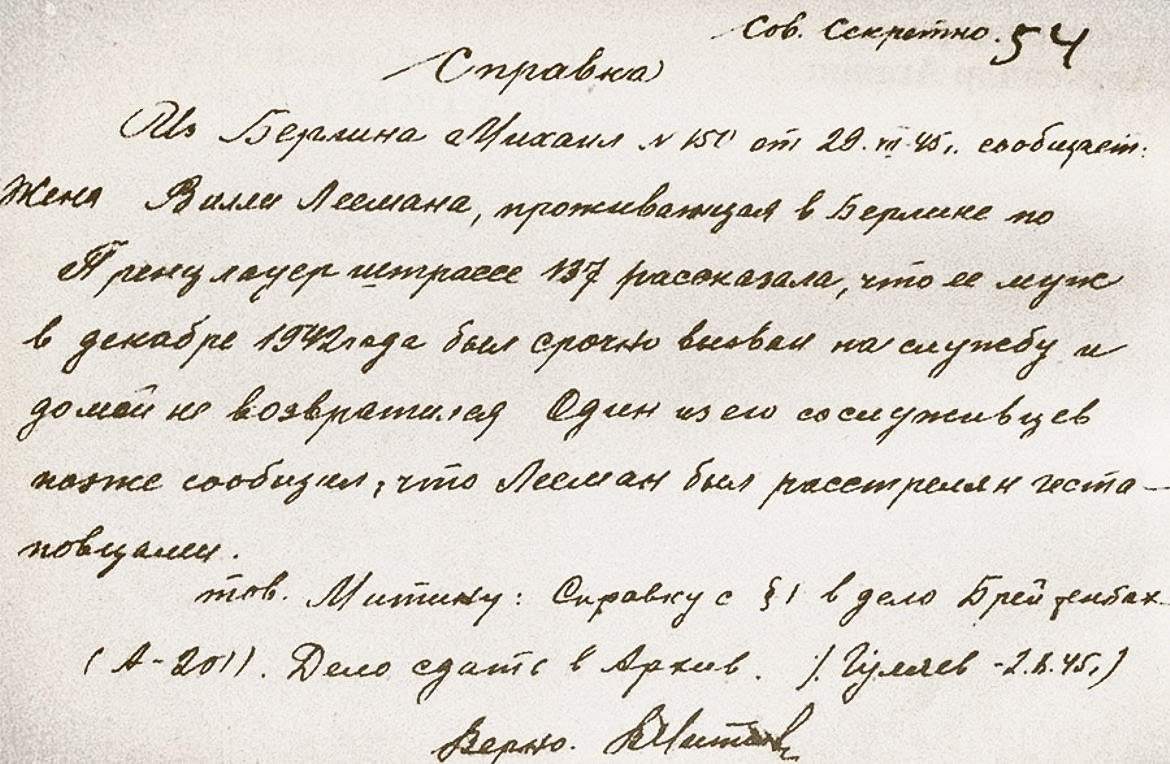 Сов. Секретно. 54
Справка
Из Берлина Михаил № от 29. 45г. сообщает:
Жена Вилли Леемана, проживающая в Берлине по
Пренцлауер штрассе 137 рассказала, что ее муж
в декабре 1942 года был срочно вызван на службу и
домой не возвратился Один из его сослуживцев
позже сообщил, что Лееман был расстрелян геста-
повцами.
тов. Митину: Справку с §1 в дело Брейтенбах
(А-201). Дело сдать в Архив. /Гуляев
Верно.